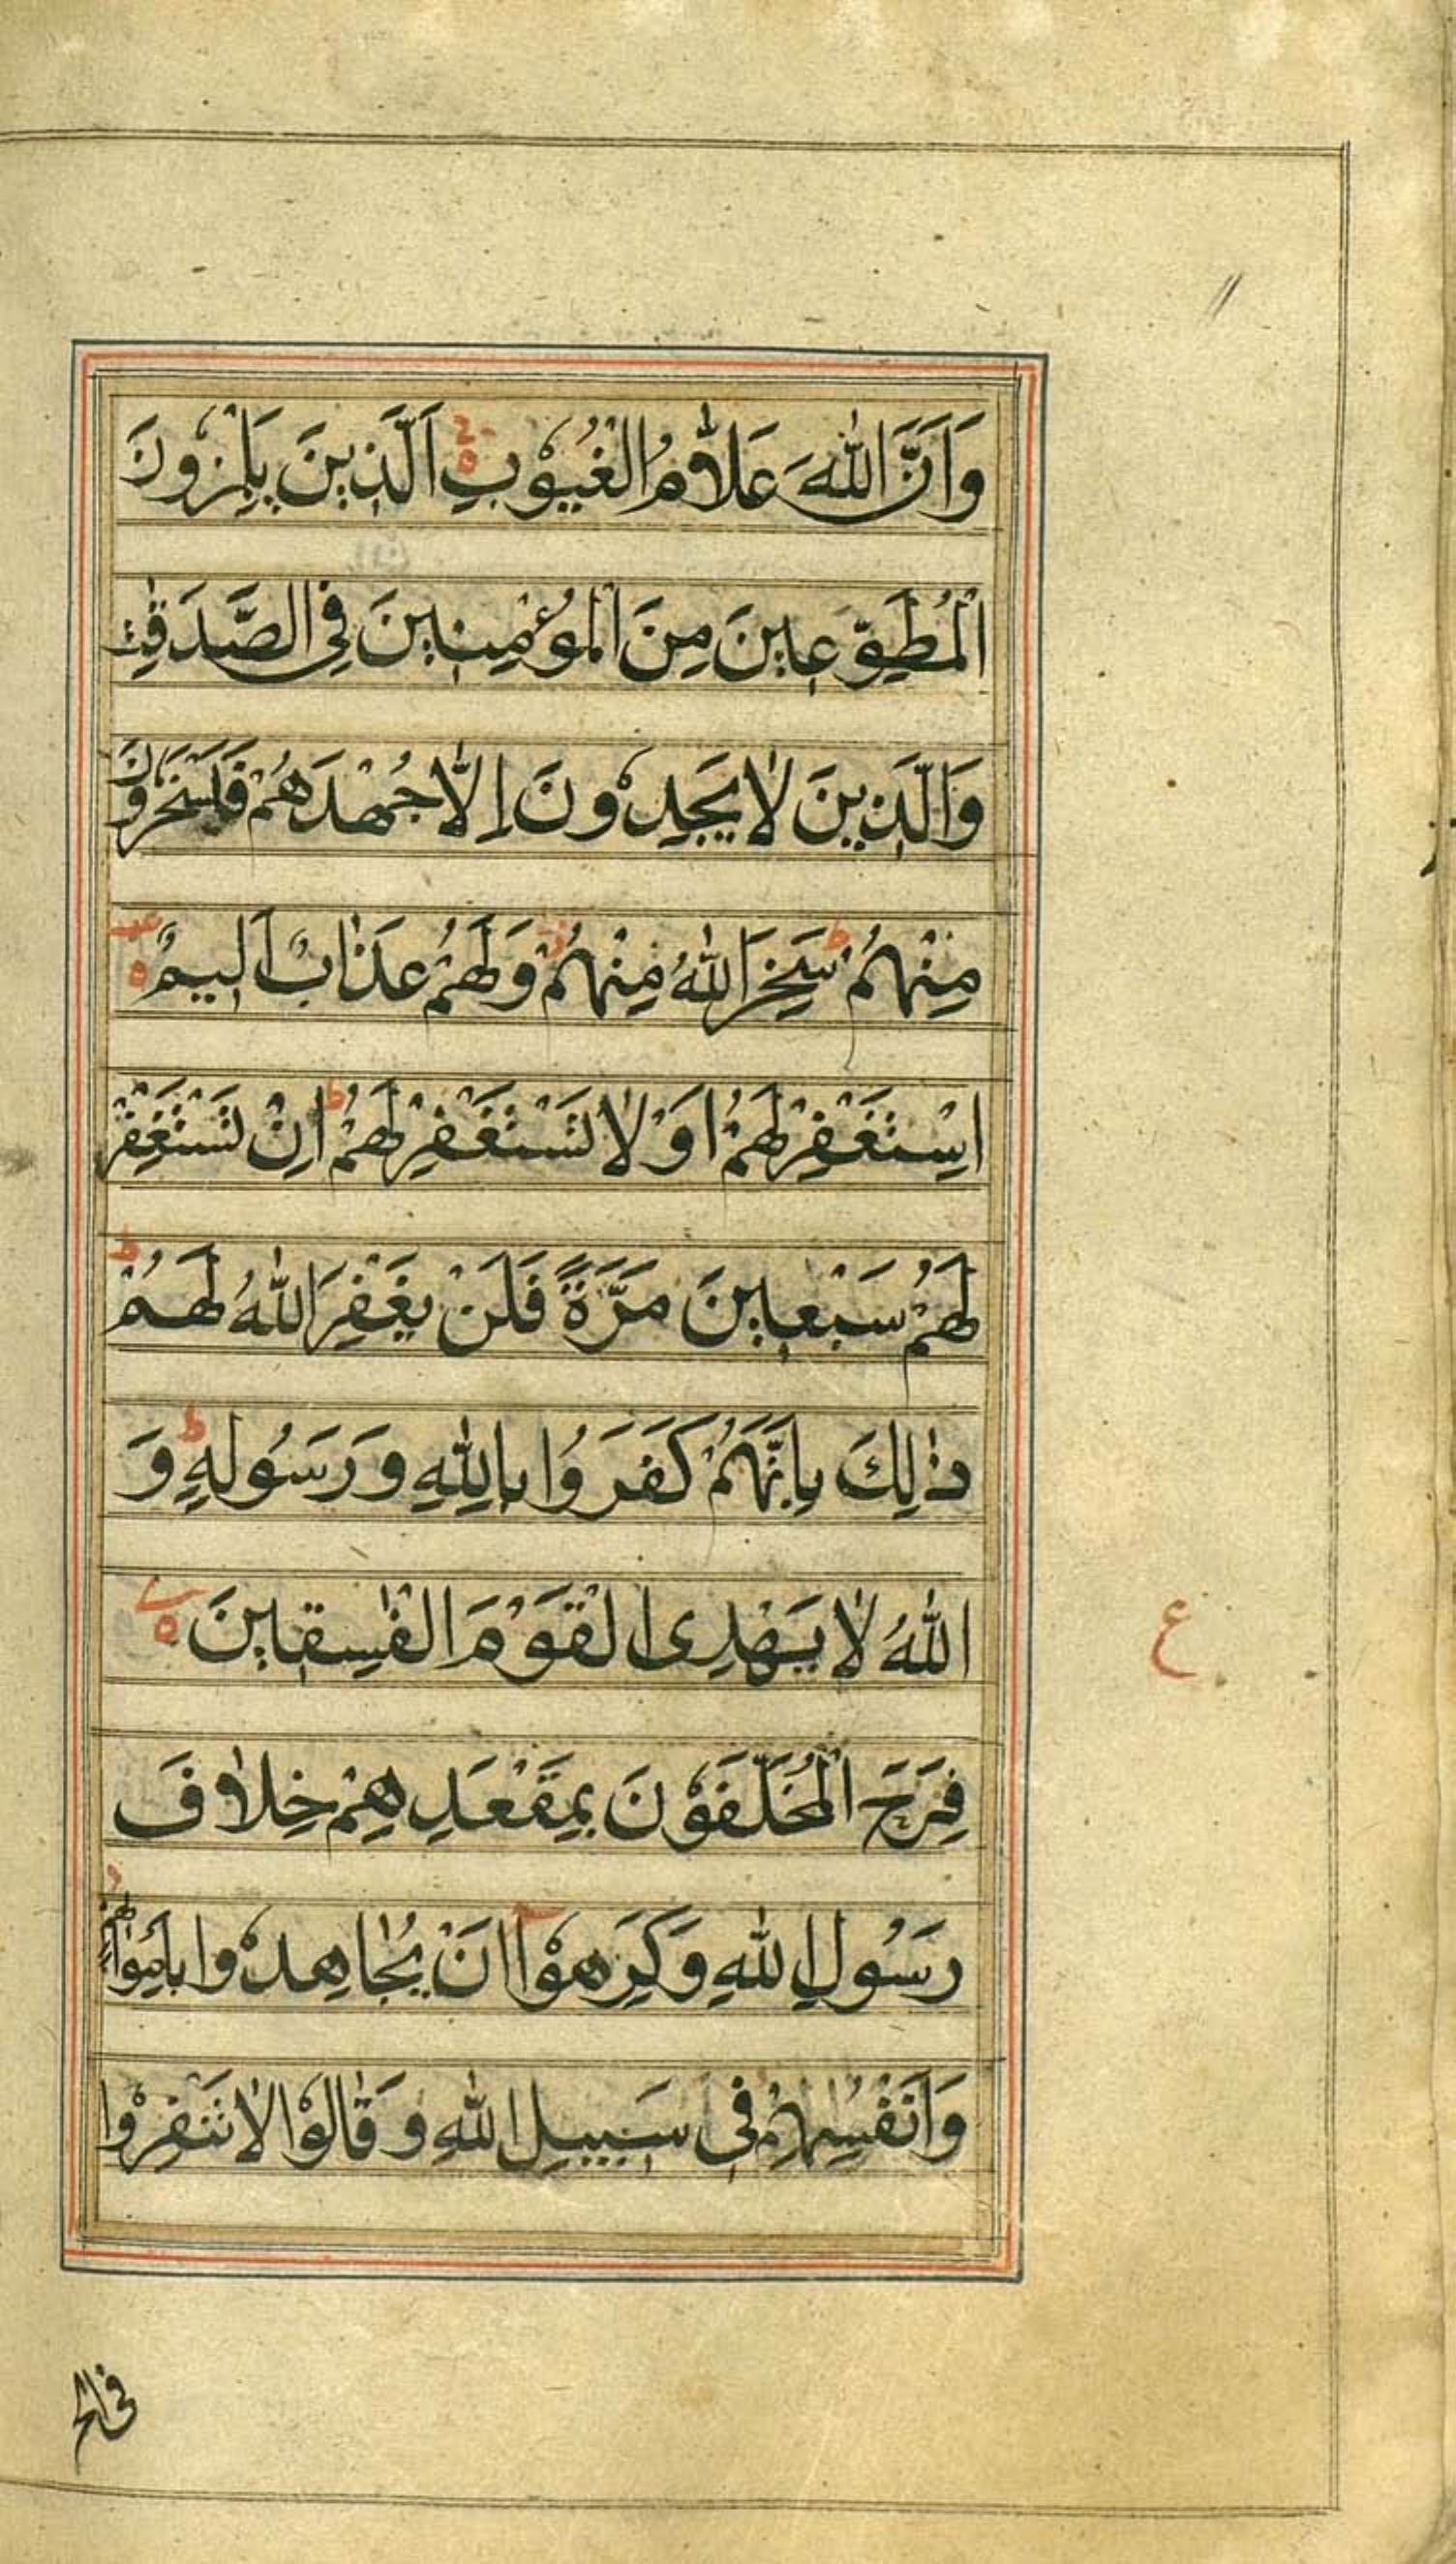 وَاَنَّ اللّٰهَ عَلَّامُ الْغُيُوْبِ اَلَّذِيْنَ يَلْمِزُوْنَ
الْمُطَّوِّعِيْنَ مِنَ الْمُؤْمِنِيْنَ فِى الصَّدَقٰتِ
وَالَّذِيْنَ لَا يَجِدُوْنَ اِلَّا جُهْدَهُمْ فَيَسْخَرُوْنَ
مِنْهُمْ ط سَخِرَ اللّٰهُ مِنْهُمْ وَلَهُمْ عَذَابٌ اَلِيْمٌ
اِسْتَغْفِرْ لَهُمْ اَوْ لَا تَسْتَغْفِرْ لَهُمْ ط اِنْ تَسْتَغْفِرْ
لَهُمْ سَبْعِيْنَ مَرَّةً فَلَنْ يَغْفِرَ اللّٰهُ لَهُمْ ط
ذٰلِكَ بِاَنَّهُمْ كَفَرُوْا بِاللّٰهِ وَرَسُوْلِهٖ ط وَ
اللّٰهُ لَا يَهْدِى الْقَوْمَ الْفٰسِقِيْنَ
ع
فَرِحَ الْمُخَلَّفُوْنَ بِمَقْعَدِهِمْ خِلَافَ
رَسُوْلِ اللّٰهِ وَكَرِهُوْا اَنْ يُّجَاهِدُوْا بِاَمْوَالِهِمْ
وَاَنْفُسِهِمْ فِى سَبِيْلِ اللّٰهِ وَقَالُوْا لَا تَنْفِرُوْا
فى الحر